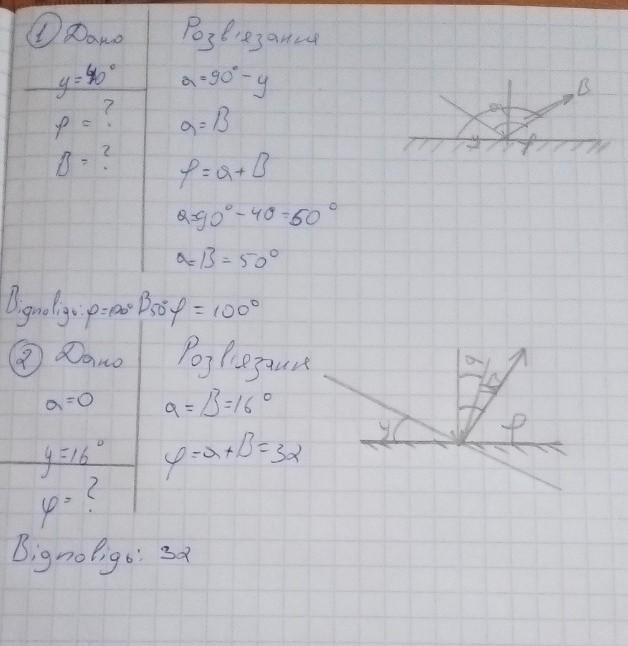 1 Дано
y=40°
φ = ?
B = ?
Розв'язання
a=90°-y
a=B
φ=a+B
a=90°-40=50°
a=B=50°
B
a
y
φ
Відповідь: φ=100° B50° φ = 100°
2 Дано
a=0
y=16°
φ=?
Розв'язання
a=B=16°
φ=a+B=32
a
B
y
φ
Відповідь: 32